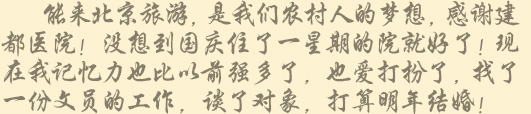 能来北京旅游，是我们农村人的梦想，感谢建
都医院！没想到国庆住了一星期的院就好了！现
在我记忆力也比以前强多了，也爱打扮了，找了
一份文员的工作，谈了对象，打算明年结婚！